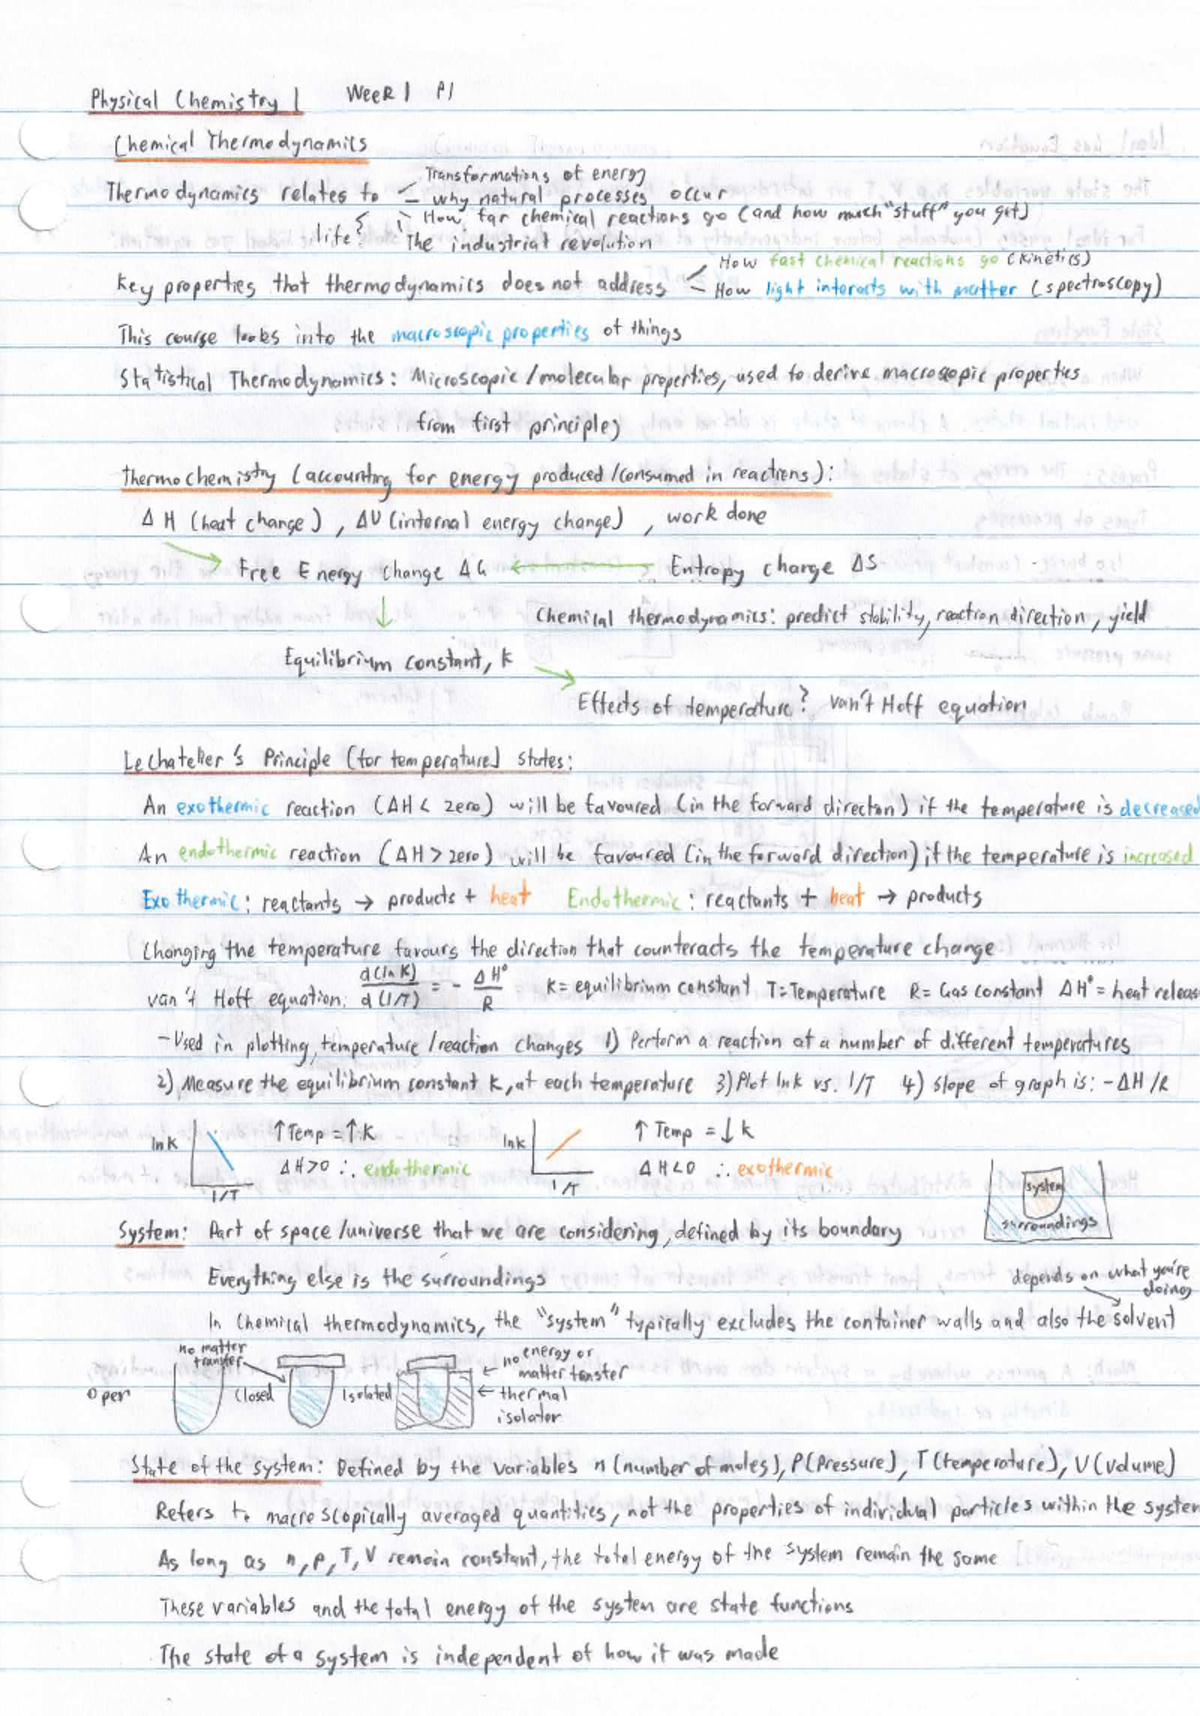 Physical Chemistry 1 Week 1 P1
Chemical Thermodynamics
Transformations of energy
Thermodynamics relates to why natural processes occur
How far chemical reactions go (and how much "stuff" you get)
life? The industrial revolution
How fast chemical reactions go (kinetics)
Key properties that thermodynamics does not address How light interacts with matter (spectroscopy)
This course looks into the macroscopic properties of things
Statistical Thermodynamics: Microscopic/molecular properties, used to derive macroscopic properties
from first principles
Thermochemistry (accounting for energy produced/consumed in reactions):
ΔH (heat change), ΔU (internal energy change), work done
Free Energy change ΔG Entropy change ΔS
Chemical thermodynamics: predict stability, reaction direction, yield
Equilibrium constant, K
Effects of temperature? van't Hoff equation
Le Chatelier's Principle (for temperature) states:
An exothermic reaction (ΔH < zero) will be favoured (in the forward direction) if the temperature is decreased
An endothermic reaction (ΔH > zero) will be favoured (in the forward direction) if the temperature is increased
Exothermic: reactants → products + heat Endothermic: reactants + heat → products
Changing the temperature favours the direction that counteracts the temperature change
van't Hoff equation: d(ln K)/d(1/T) = - ΔH°/R K = equilibrium constant T = Temperature R = Gas constant ΔH° = heat releas
- Used in plotting, temperature/reaction changes 1) Perform a reaction at a number of different temperatures
2) Measure the equilibrium constant K, at each temperature 3) Plot lnk vs. 1/T 4) slope of graph is: -ΔH/R
lnK ↑Temp = ↑K lnK ↑Temp = ↓K
ΔH>0 ∴ endothermic ΔH<0 ∴ exothermic
1/T 1/T
system
surroundings
System: Part of space/universe that we are considering, defined by its boundary
Everything else is the surroundings
depends on what you're doing
In Chemical thermodynamics, the "system" typically excludes the container walls and also the solvent
no matter transfer
no energy or matter tansfer
Open Closed Isolated thermal isolator
State of the system: Defined by the variables n (number of moles), P (Pressure), T (temperature), V (volume)
Refers to macroscopically averaged quantities, not the properties of individual particles within the system
As long as n, p, T, V remain constant, the total energy of the system remain the same
These variables and the total energy of the system are state functions
The state of a system is independent of how it was made